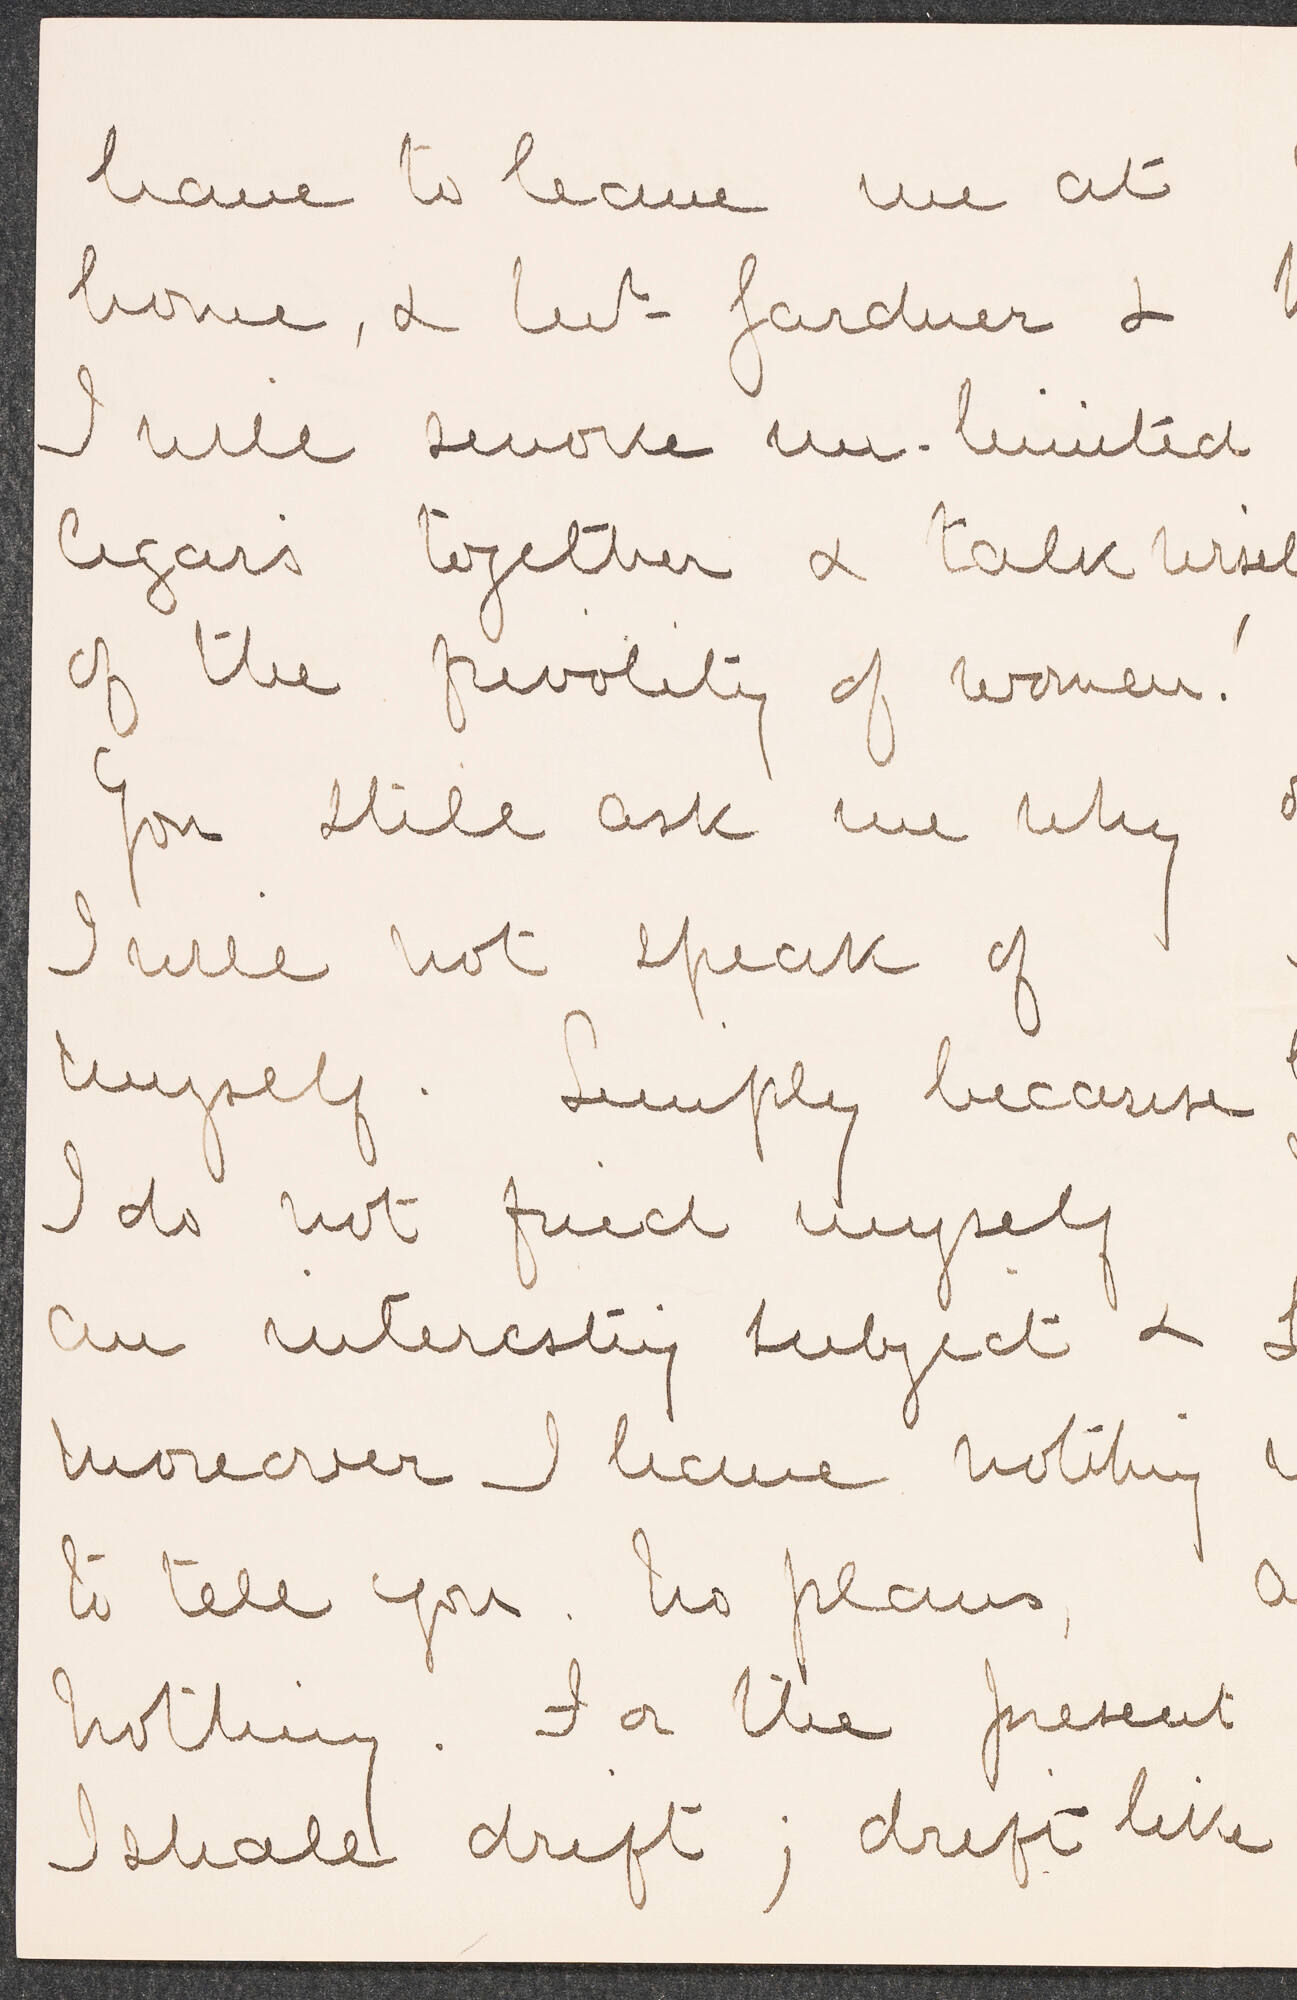 have to leave me at
home, & let Gardner &
I will smoke un-limited
cigars together & talk
of the frivolity of women!
You still ask me why
I will not speak of
myself. Simply because
I do not find myself
an interesting subject &
moreover I have nothing
to tell you. No plans,
nothing. For the present
I shall drift; drift like